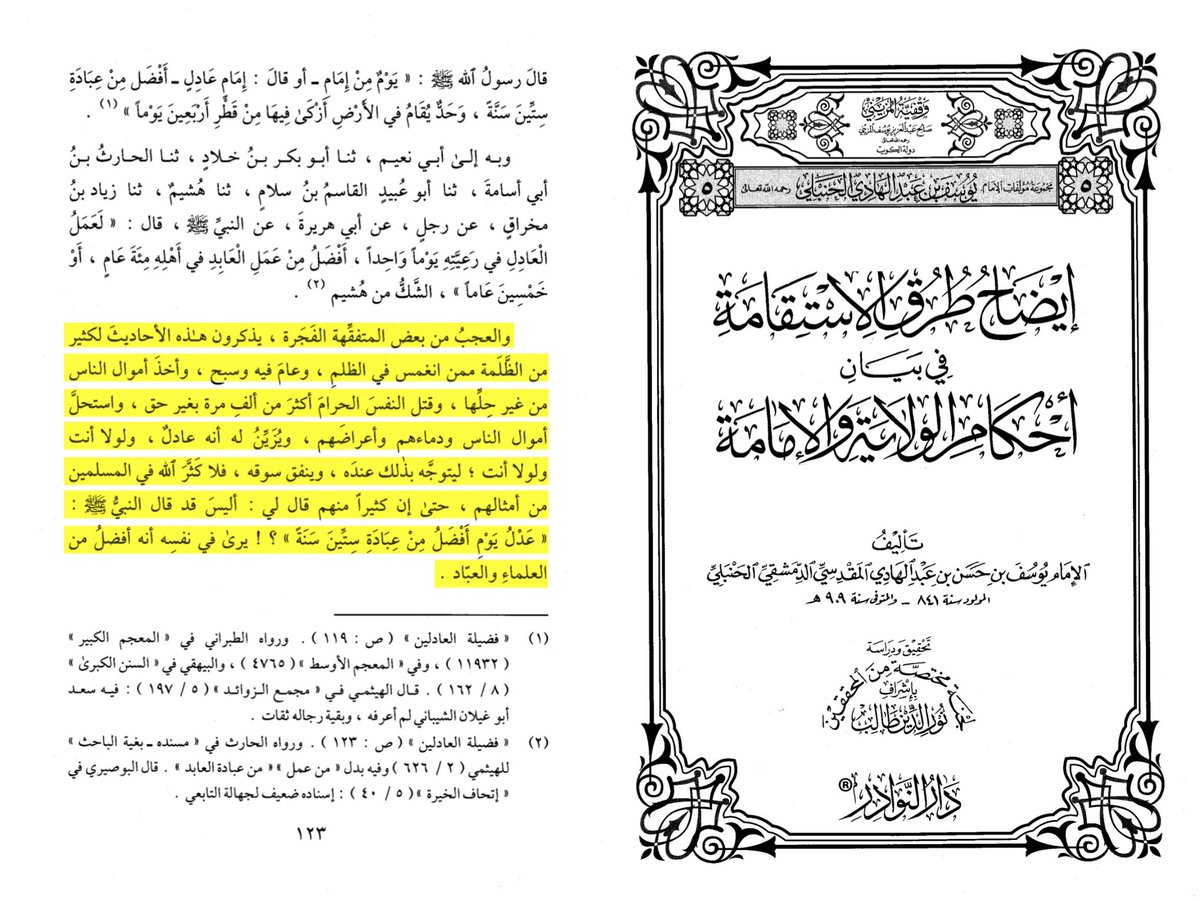 وقفية المزيني
صالح عبد العزيز يوسف المزيني
رحمه الله تعالى
دولة الكويت
٥ مجموعة مؤلفات الإمام يُوسُف بن عَبْدِ الهَادِي الحَنْبَلِي رحمه الله تعالى ٥
إيضَاحُ طُرُقِ الِاسْتِقَامَةِ
فِي بَيَانِ
أَحْكَامِ الوِلَايَةِ وَالإِمَامَةِ
تَألِيفُ
الإمَام يُوسُفَ بن حَسَن بن عَبْدِ الهَادِي المَقدِسِيِّ الدِّمَشْقِيِّ الحَنْبَلِيِّ
المولود سنة ٨٤١ - والمتوفى سنة ٩٠٩ هـ
تحقيق ودراسة
لجنة مختصة من المحققين
بإشراف
نور الدين طالب
دار النوادر ®
قالَ رسولُ ٱلله ﷺ : « يَوْمٌ مِنْ إِمَامٍ ـ أو قالَ : إِمَامٍ عَادِلٍ ـ أَفْضَل مِنْ عِبَادَةِ
سِتِّينَ سَنَةً ، وَحَدٌّ يُقَامُ في الأَرْضِ أَزْكَىٰ فِيهَا مِنْ قَطْرِ أَرْبَعِينَ يَوْماً » (١) .
وبه إلىٰ أبي نعيم ، ثنا أبو بكر بنُ خلادٍ ، ثنا الحارثُ بنُ
أبي أسامةَ ، ثنا أبو عُبيدٍ القاسمُ بنُ سلامٍ ، ثنا هُشيمٌ ، ثنا زياد بنُ
مخراقٍ ، عن رجلٍ ، عن أبي هريرةَ ، عن النبيِّ ﷺ ، قال : « لَعَمَلُ
الْعَادِلِ في رَعِيَّتِهِ يَوْماً وَاحِداً ، أَفْضَلُ مِنْ عَمَلِ الْعَابِدِ في أَهْلِهِ مِئَةَ عَامٍ ، أَوْ
خَمْسِينَ عَاماً » ، الشَّكُّ من هُشيم (٢) .
والعجبُ من بعض المتفقِّهة الفَجَرة ، يذكرون هـٰذه الأحاديثَ لكثير
من الظَّلَمة ممن انغمس في الظلمِ ، وعامَ فيه وسبح ، وأخذَ أموال الناس
من غير حِلِّها ، وقتل النفسَ الحرامَ أكثرَ من ألفِ مرة بغير حق ، واستحلَّ
أموال الناس ودماءهم وأعراضَهم ، ويُزَيِّنُ له أنه عادلٌ ، ولولا أنت
ولولا أنت ؛ ليتوجَّه بذٰلك عندَه ، وينفق سوقه ، فلا كَثَّرَ ٱلله في المسلمين
من أمثالهم ، حتىٰ إن كثيراً منهم قال لي : أليسَ قد قال النبيُّ ﷺ :
« عَدْلُ يَوْمٍ أَفْضَلُ مِنْ عِبَادَةِ سِتِّينَ سَنَةً » ؟ ! يرىٰ في نفسِه أنه أفضلُ من
العلماءِ والعبّاد .
(١) « فضيلة العادلين » ( ص : ١١٩ ) . ورواه الطبراني في « المعجم الكبير »
( ١١٩٣٢ ) ، وفي « المعجم الأوسط » ( ٤٧٦٥ ) ، والبيهقي في « السنن الكبرىٰ »
( ٨ / ١٦٢ ) . قـال الهيثمي فـي « مجمع الـزوائد » ( ٥ / ١٩٧ ) : فيـه سعد
أبو غيلان الشيباني لم أعرفه ، وبقية رجاله ثقات .
(٢) « فضيلة العادلين » ( ص : ١٢٣ ) . ورواه الحارث في « مسنده ـ بغية الباحث »
للهيثمي ( ٢ / ٦٢٦ ) وفيه بدل « من عمل » « من عبادة العابد » . قال البوصيري في
« إتحاف الخيرة » ( ٥ / ٤٠ ) : إسناده ضعيف لجهالة التابعي .
١٢٣